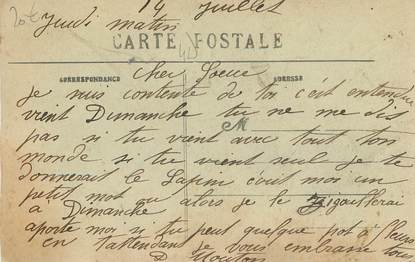 20€
14 Juillet
Jeudi matin
CARTE POSTALE
Cher Soeur
CORRESPONDANCE
ADRESSE
je suis contente de toi c'est entendu
vient Dimanche tu ne me dis
pas si tu vient avec tout ton
M
monde si tu vient seule je te
donnerait le Lapin écrit moi un
petit mot ou alors je le zigouillerai
a Dimanche
aporte moi si tu peut quelque pot a fleurs
en t'attendant je vous embrasse tous